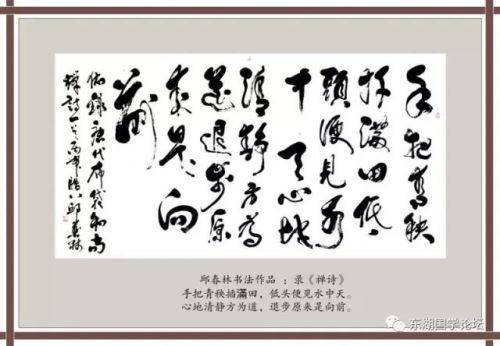 手把青秧
插滿田低
頭便見水
中天心地
清静方為
道退步原
来是向
前
錄唐代布袋和尚
禪詩一首 邱春林
邱春林书法作品 ：录《禅诗》
手把青秧插滿田，低头便见水中天。
心地清静方为道，退步原来是向前。
东湖国学论坛